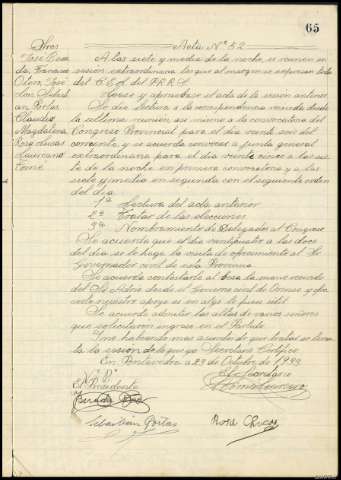 65
Sres Acta Nº 52
A las siete y media de la noche, se reunen en
sesión extraordinaria los que al margen se expresan
del C. E. del P.R.R.S.
Leese y apruébase el acta de la sesión anterior
Se dió lectura a la correspondencia recibida desde
Claudio la última reunión así mismo a la convocatoria del
Magdalena Congreso Provincial para el dia veinte seis del
Rosendo corriente, y se acuerda convocar a junta general
Laureano extraordinaria para el dia veinte cinco a las sie-
te de la noche en primera convocatoria y a las
siete y media en segunda con el siguiente orden
del dia
1ª Lectura del acta anterior
2ª Tratar de las elecciones
3ª Nombramiento de Delegados al Congreso
Se acuerda que el dia veinticuatro a las doce
del dia se le haga la visita de ofrecimiento al Sr
Gobernador civil de esta Provincia
Se acuerda contestarle al
del Sr Adrio desde el Gobierno civil de Orense y ofre-
cerle nuestro apoyo si en algo le fuese útil
Se acuerda admitir las altas de varios señores
que solicitaron ingreso en el Partido.
I no habiendo mas asuntos de que tratar se levan-
ta la sesión de lo que yo Secretario Certifico
En Pontevedra a 23 de Octubre de 1933
Vº Bº El Secretario
El Presidente
Sebastián Portas Rosa